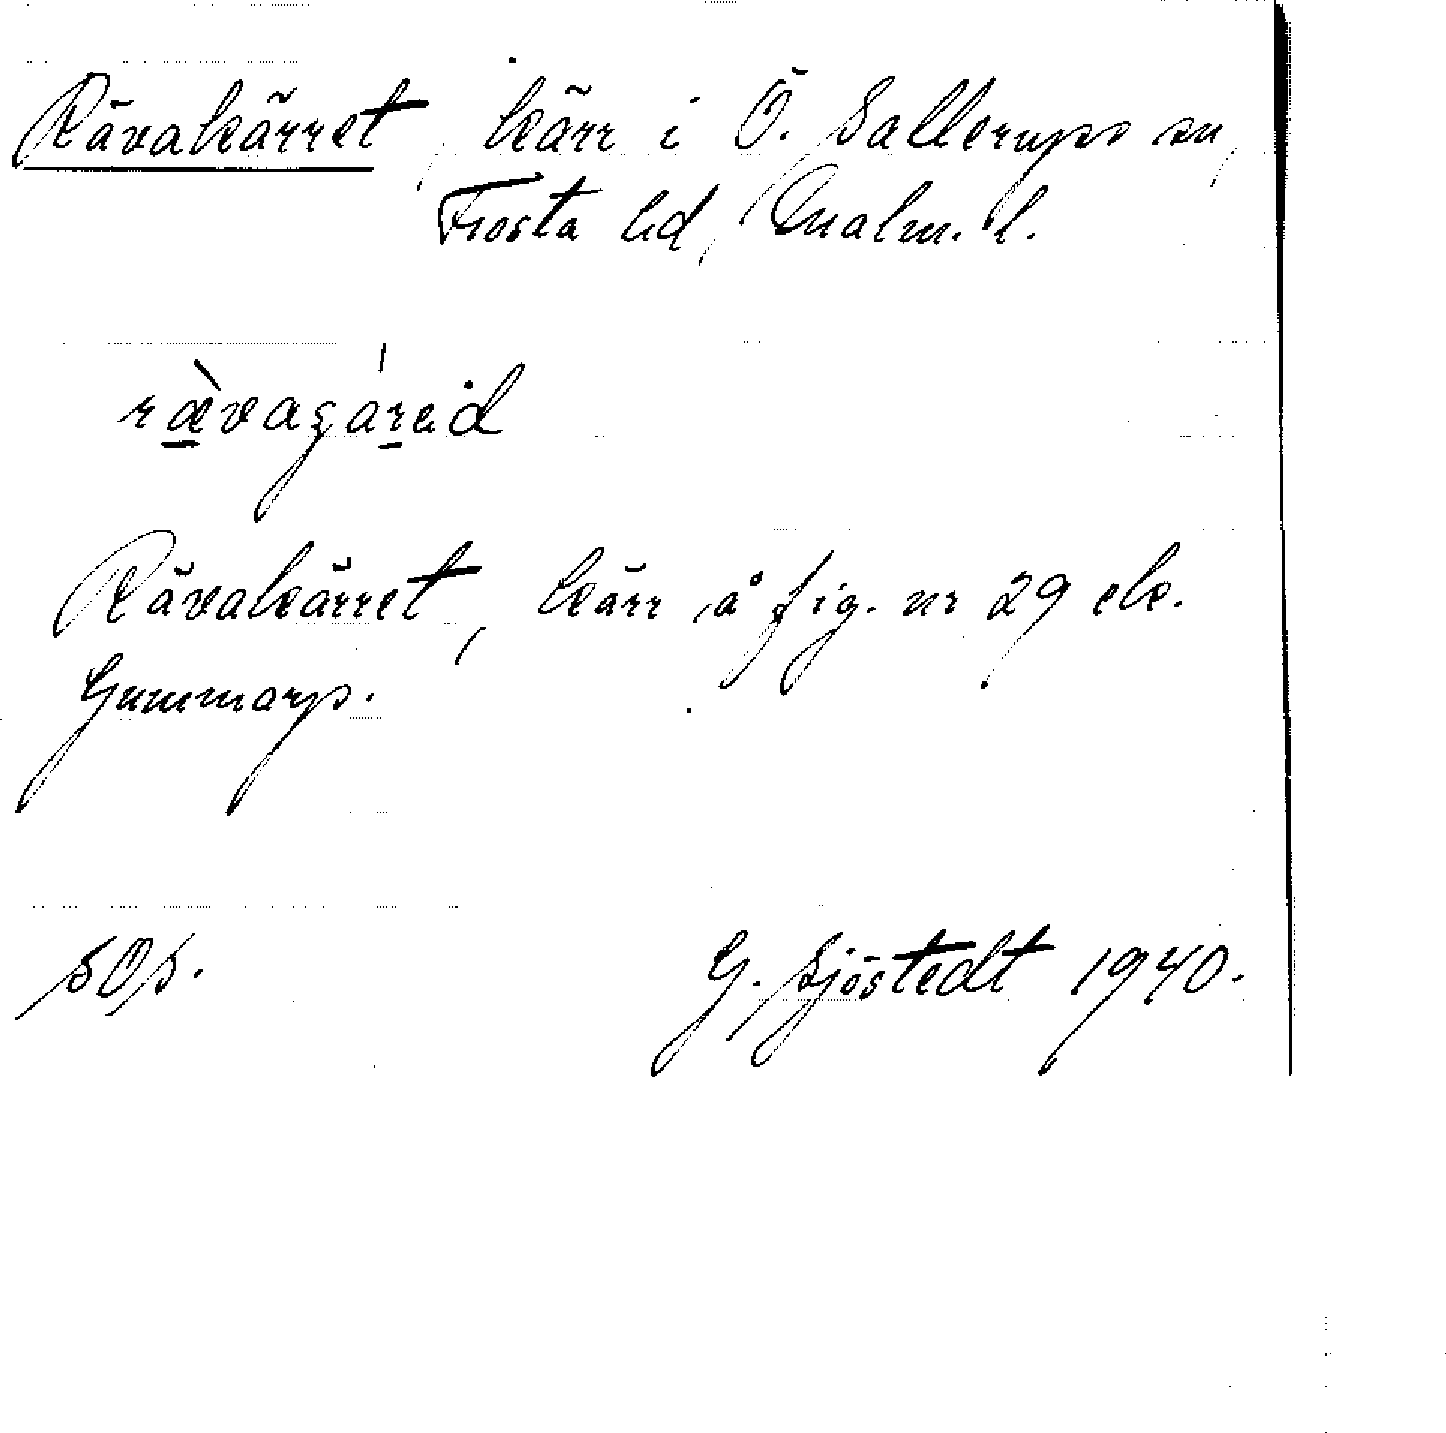 Rävakärret, kärr i Ö. Sallerups sn,
Frosta hd, Malm. l.
Rävakärret, kärr å fig. nr 29 ek.
Gummarp.
SOS.
G. Sjöstedt 1940.